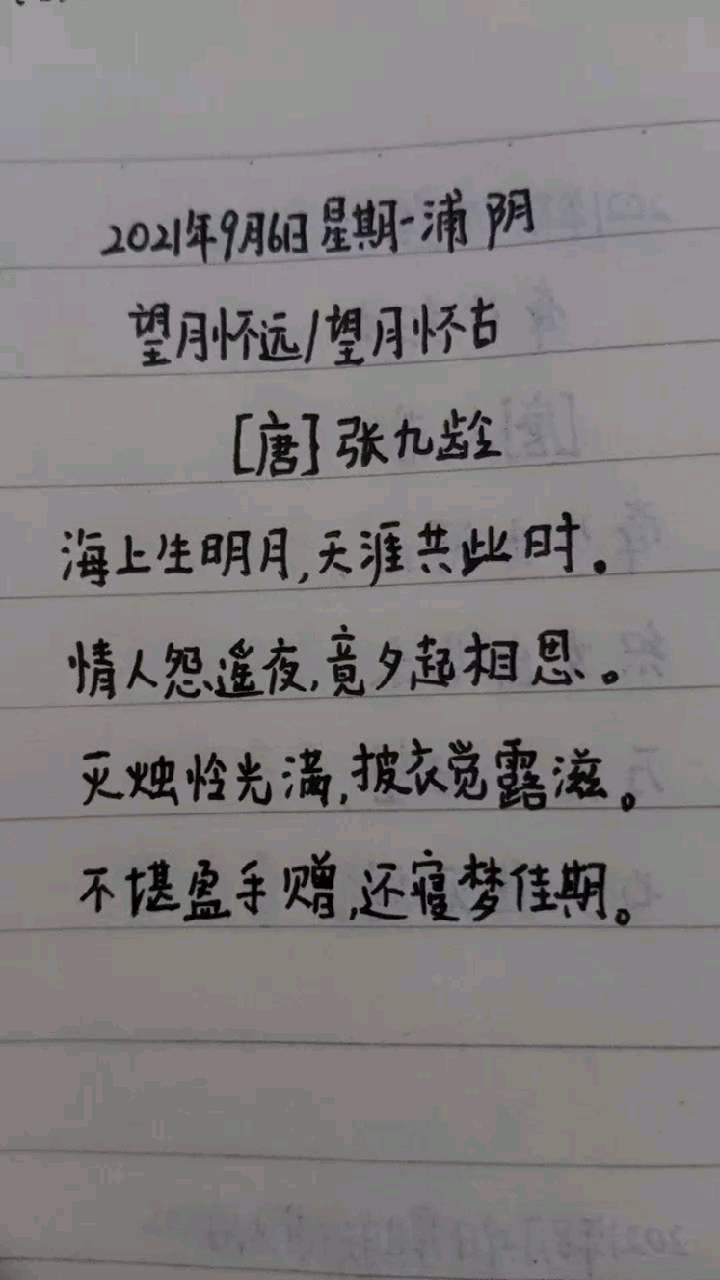 2021年9月6日 星期一 浦 阴
望月怀远/望月怀古
[唐]张九龄
海上生明月,天涯共此时。
情人怨遥夜,竟夕起相思。
灭烛怜光满,披衣觉露滋。
不堪盈手赠,还寝梦佳期。